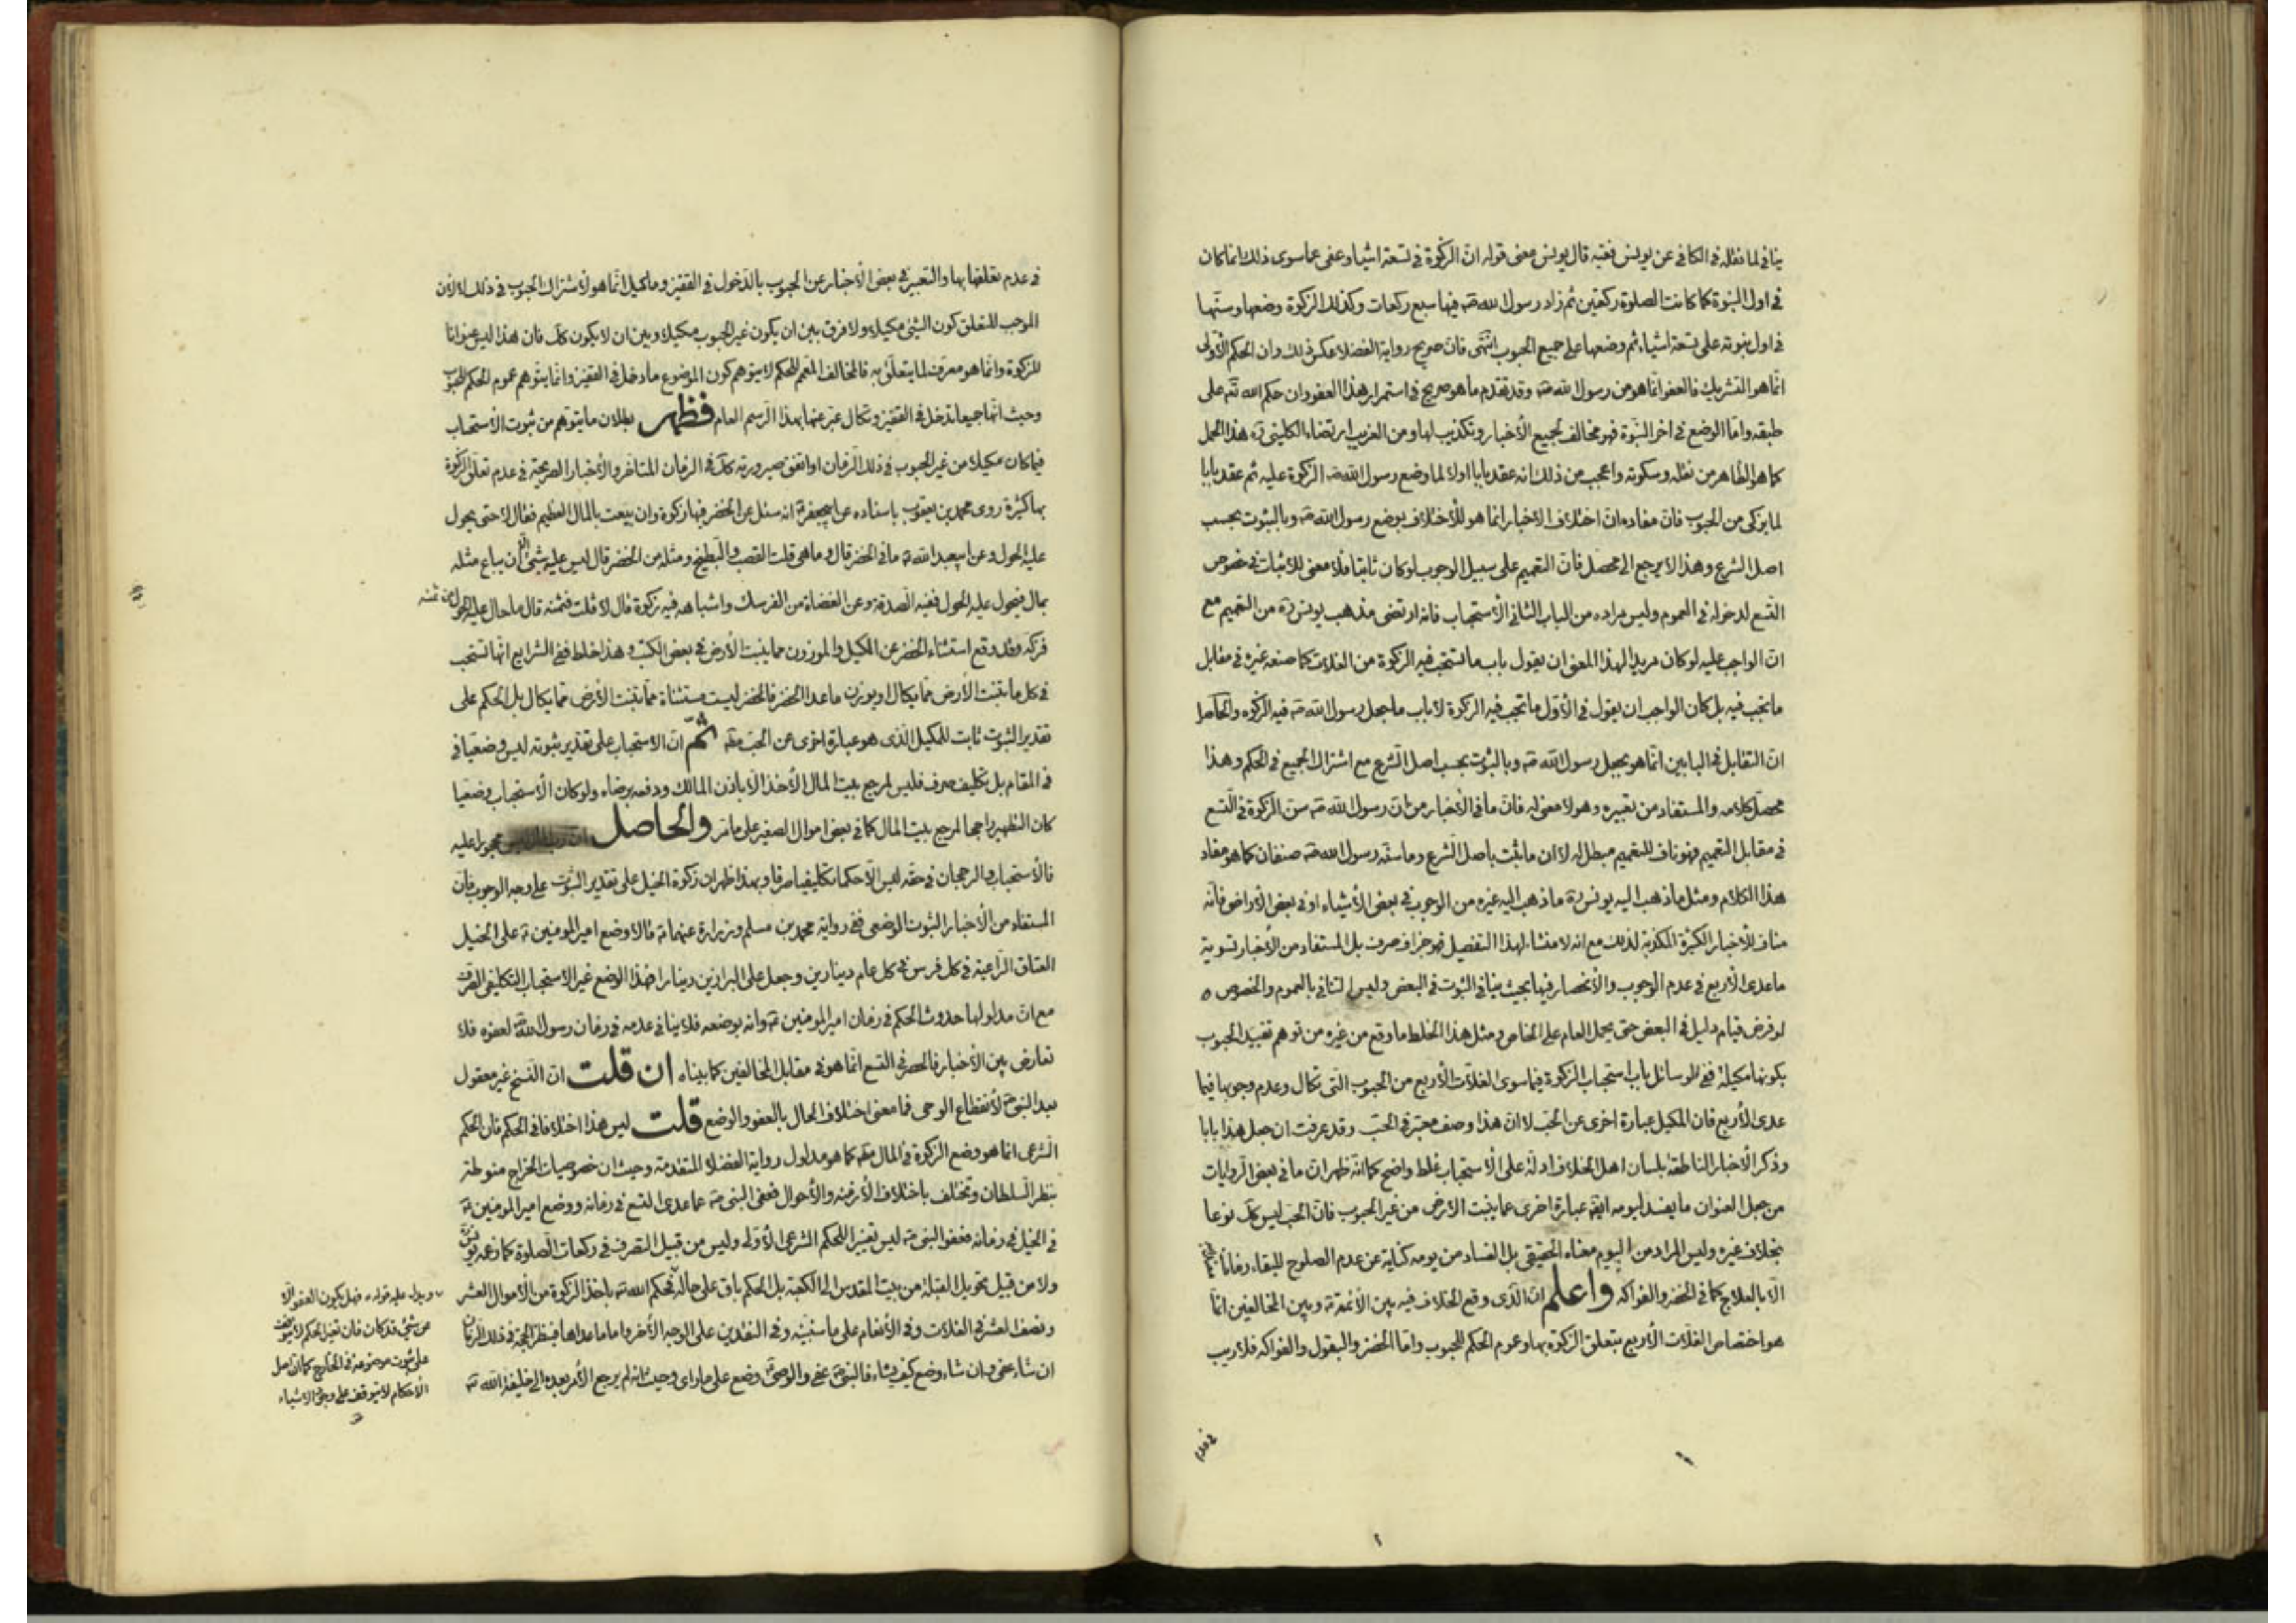 ينافى لما نقله فى الكافى عن يونس ففيه قال يونس معنى قوله ان الزكوة فى تسعة اشياء وعفى عما سوى ذلك انما كان
فى اول النبوة كما كانت الصلوة ركعتين ثم زاد رسول الله صه فيها سبع ركعات وكذلك الزكوة وضعها وسنها
فى اول نبوته على تسعة اشياء ثم وضعها على جميع الحبوب انتهى فان صريح رواية الفضلا عكس ذلك وان الحكم الاولى
انما هو التشريك فالعفو انما هو من رسول الله صه وقد تقدم ما هو صريح فى استمرار هذا العفو وان حكم الله تم على
طبقه واما الوضع فى اخر النبوة فهو مخالف لجميع الأخبار وتكذيب لها ومن الغريب ارتضاء الكلينى ره هذا الحمل
كما هو الظاهر من نقله وسكوته واعجب من ذلك انه عقد بابا اولا لما وضع رسول الله صه الزكوة عليه ثم عقد بابا
لما يزكى من الحبوب فان مفاده ان اختلاف الاخبار انما هو للأختلاف بوضع رسول الله صه وبالثبوت بحسب
اصل الشرع وهذا لا يرجع الى محصل فان التعميم على سبيل الوجوب لو كان ثابتا فلا معنى للاثبات فى خصوص
التسع لدخوله فى العموم وليس مراده من الباب الثانى الأستحباب فانه ارتضى مذهب يونس ره من التعميم مع
ان الواجب عليه لو كان مريدا لهذا المعنى ان يقول باب ما تستحب فيه الزكوة من الغلات كما صنعه غيره فى مقابل
ما تجب فيه بل كان الواجب ان يقول فى الأول ما تجب فيه الزكوة لا باب ما جعل رسول الله صه فيه الزكوه والحاصل
ان التقابل فى البابين انما هو بجعل رسول الله صه وبالثبوت بحسب اصل الشرع مع اشتراك الجميع فى الحكم وهذا
محصل كلامه والمستفاد من تعبيره وهو لا معنى له فان ما فى الأخبار من ان رسول الله صه سن الزكوة فى التسع
فى مقابل التعميم فهو ناف للتعميم مبطل له لا ان ما يثبت باصل الشرع وما سنه رسول الله صه صنفان كما هو مفاد
هذا الكلام ومثل ما ذهب اليه يونس ره ما ذهب اليه غيره من الوجوب فى بعض الأشياء او فى بعض الأراضى فانه
مناف للأخبار الكثيرة المكذبة لذلك مع انه لا منشاء لهذا التفصيل فهو جزاف صرف بل المستفاد من الأخبار تسوية
ما عدى الأربع فى عدم الوجوب والأنحصار فيها بحيث ينافى الثبوت فى البعض وليس التنافى بالعموم والخصوص
لو فرض قيام دليل فى البعض حتى يحمل العام على الخاص ومثل هذا الخلط ما وقع من غيره من توهم تقييد الحبوب
بكونها مكيلة ففى الوسائل باب استحباب الزكوة فيما سوى الغلات الأربع من الحبوب التى تكال وعدم وجوبها فيما
عدى الأربع فان المكيل عبارة اخرى عن الحب لا ان هذا وصف معتبر فى الحب وقد عرفت ان جعل هذا بابا
وذكر الأخبار الناطقة بلسان اهل الخلاف ادلة على الأستحباب غلط واضح كما انه ظهر ان ما فى بعض الروايات
من جعل العنوان ما يفسد ليومه ايضا عبارة اخرى عما ينبت الارض من غير الحبوب فان الحب ليس كك نوعا
بخلاف غيره وليس المراد من اليوم معناه الحقيقى بل الفساد من يومه كناية عن عدم الصلوح للبقاء زمانا
الا بالعلاج كما فى الخضر والفواكه واعلم ان الذى وقع الخلاف فيه بين الأئمة ع وبين المخالفين انما
هو اختصاص الغلات الأربع بتعلق الزكوة بها وعموم الحكم للحبوب واما الخضر والبقول والفواكه فلا ريب
فى عدم
فى عدم تعلقها بها والتعبير فى بعض الأخبار عن الحبوب بالدخول فى القفيز وما كيل انما هو لأشتراك الحبوب فى ذلك لا لأن
الموجب للتعلق كون الشئ مكيلا ولا فرق بين ان يكون غير الحبوب مكيلا وبين ان لا يكون كك فان هذا ليس عنوانا
للزكوة وانما هو معرف لما يتعلق به فالمخالف المعمم للحكم لا يتوهم كون الموضوع ما دخل فى القفيز وانما يتوهم عموم الحكم للحبوب
وحيث انها جميعا تدخل فى القفيز وتكال عبر عنها بهذا الرسم العام فظهر بطلان ما يتوهم من ثبوت الأستحباب
فيما كان مكيلا من غير الحبوب فى ذلك الزمان او اتفق صيرورته كك فى الزمان المتاخر والأخبار الصريحة فى عدم تعلق الزكوة
بها كثيرة روى محمد بن يعقوب باسناده عن ابيجعفر ع انه سئل عن الخضر فيها زكوة وان بيعت بالمال العظيم فقال لا حتى يحول
عليه الحول وعن ابيعبد الله ع ما فى الخضر قال وما هى قلت القصب والبطيخ ومثله من الخضر قال ليس عليه شئ الا ان يباع مثله
بمال فيحول عليه الحول ففيه الصدقة وعن الغضاة من الفرسك واشباهه فيه زكوة قال لا قلت فثمنه قال ما حال عليه الحول من ثمنه
فزكه وقد وقع استثناء الخضر عن المكيل والموزون مما ينبت الأرض فى بعض الكتب وهذا غلط ففى الشرايع انها تستحب
فى كل ما تنبت الأرض مما يكال او يوزن ما عدا الخضر فالخضر ليست مستثناة مما تنبت الأرض مما يكال بل الحكم على
تقدير الثبوت ثابت للمكيل الذى هو عبارة اخرى عن الحب ثم ان الاستحباب على تقدير ثبوته ليس وضعيا فى
فى المقام بل تكليف صرف فليس لمرجع بيت المال الأخذ الا باذن المالك ودفعه برضاه ولو كان الأستحباب وضعيا
كان التطهير راجحا لمرجع بيت المال كما فى بعض اموال الصغير على ما مر والحاصل محجورا عليه
فالأستحباب والرجحان فى حقه ليس الا حكما تكليفيا صرفا وبهذا ظهر ان زكوة الخيل على تقدير الثبوت على وجه الوجوب فان
المستفاد من الأخبار الثبوت الوضعى ففى رواية محمد بن مسلم وزرارة عنهما ع قالا وضع امير المومنين ع على الخيل
العتاق الراعية فى كل فرس فى كل عام دينارين وجعل على البراذين دينارا فهذا الوضع غير الاستحباب التكليفى الصرف
مع ان مدلولها حدوث الحكم فى زمان امير المومنين ع وانه بوضعه فلا ينافى عدمه فى زمان رسول الله صه لعفوه فلا
تعارض بين الأخبار فالحصر فى التسع انما هو فى مقابل المخالفين كما بيناه ان قلت ان النسخ غير معقول
بعد النبى صه لأنقطاع الوحى فما معنى اختلاف الحال بالعفو والوضع قلت ليس هذا اختلافا فى الحكم فان الحكم
الشرعى انما هو وضع الزكوة فى المال كما هو مدلول رواية الفضلا المتقدمة وحيث ان خصوصيات الخراج منوطة
بنظر السلطان وتختلف باختلاف الأزمنة والأحوال فعفى النبى صه عما عدى التسع فى زمانه ووضع امير المومنين ع
فى الخيل فى زمانه فعفو النبى صه ليس تغييرا للحكم الشرعى الأولى وليس من قبيل التصرف فى ركعات الصلوة كما زعمه يونس
ولا من قبيل تحويل القبلة من بيت المقدس الى الكعبة بل الحكم باق على حاله فحكم الله تم باخذ الزكوة من الأموال العشر
ونصف العشر فى الغلات وفى الأنعام على ما سنبينه وفى النقدين على الوجه الأخر واما ما عداها فبنظر الحجة فى ذلك الزمان
ان شاء عفى وان شاء وضع كيف يشاء فالنبى صه عفى والوصى وضع على ما راى وحيث انه لم يرجع الأمر بعده الى خليفة الله تم
ويدل عليه قوله ع فهل يكون العفو الا
عن شئ قد كان فان تغير الحكم لا يتوقف
على ثبوت موضوعه فى الخارج كما ان اصل
الأحكام لا يتوقف على وجود الاشياء